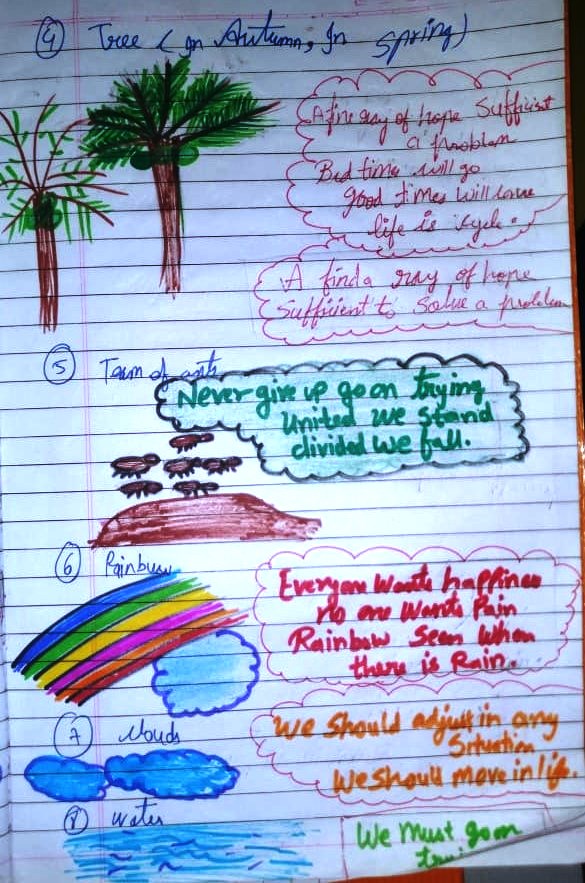 ④ Tree (In Autumn, In Spring)
A fine ray of hope Sufficist
a problem
Bad time will go
good times will come
life is cycle.
A find a ray of hope
Sufficient to Solve a problem
⑤ Team of ants
Never give up go on trying
United we stand
divided we fall.
⑥ Rainbow
Everyone Wants happiness
no one Wants Pain
Rainbow Seen When
there is Rain.
⑦ Clouds
We Should adjust in any
Situation
We should move in life.
⑧ Water
We must go on